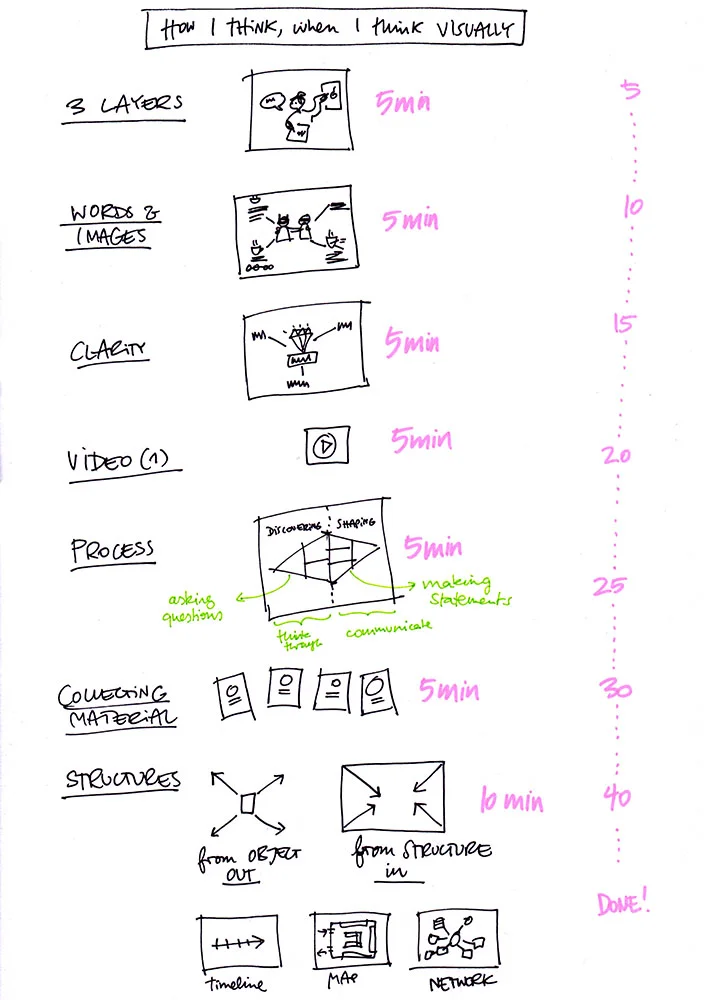 HOW I THINK, when I think VISUALLY
3 LAYERS
5min
5
WORDS &
IMAGES
5min
10
CLARITY
5min
15
VIDEO (1)
5min
20
PROCESS
DISCOVERING SHAPING
5min
asking
questions
making
statements
25
think
through
communicate
COLLECTING
MATERIAL
5min
30
STRUCTURES
10 min
40
from OBJECT
OUT
from STRUCTURE
in
DONE!
timeline
MAP
NETWORK